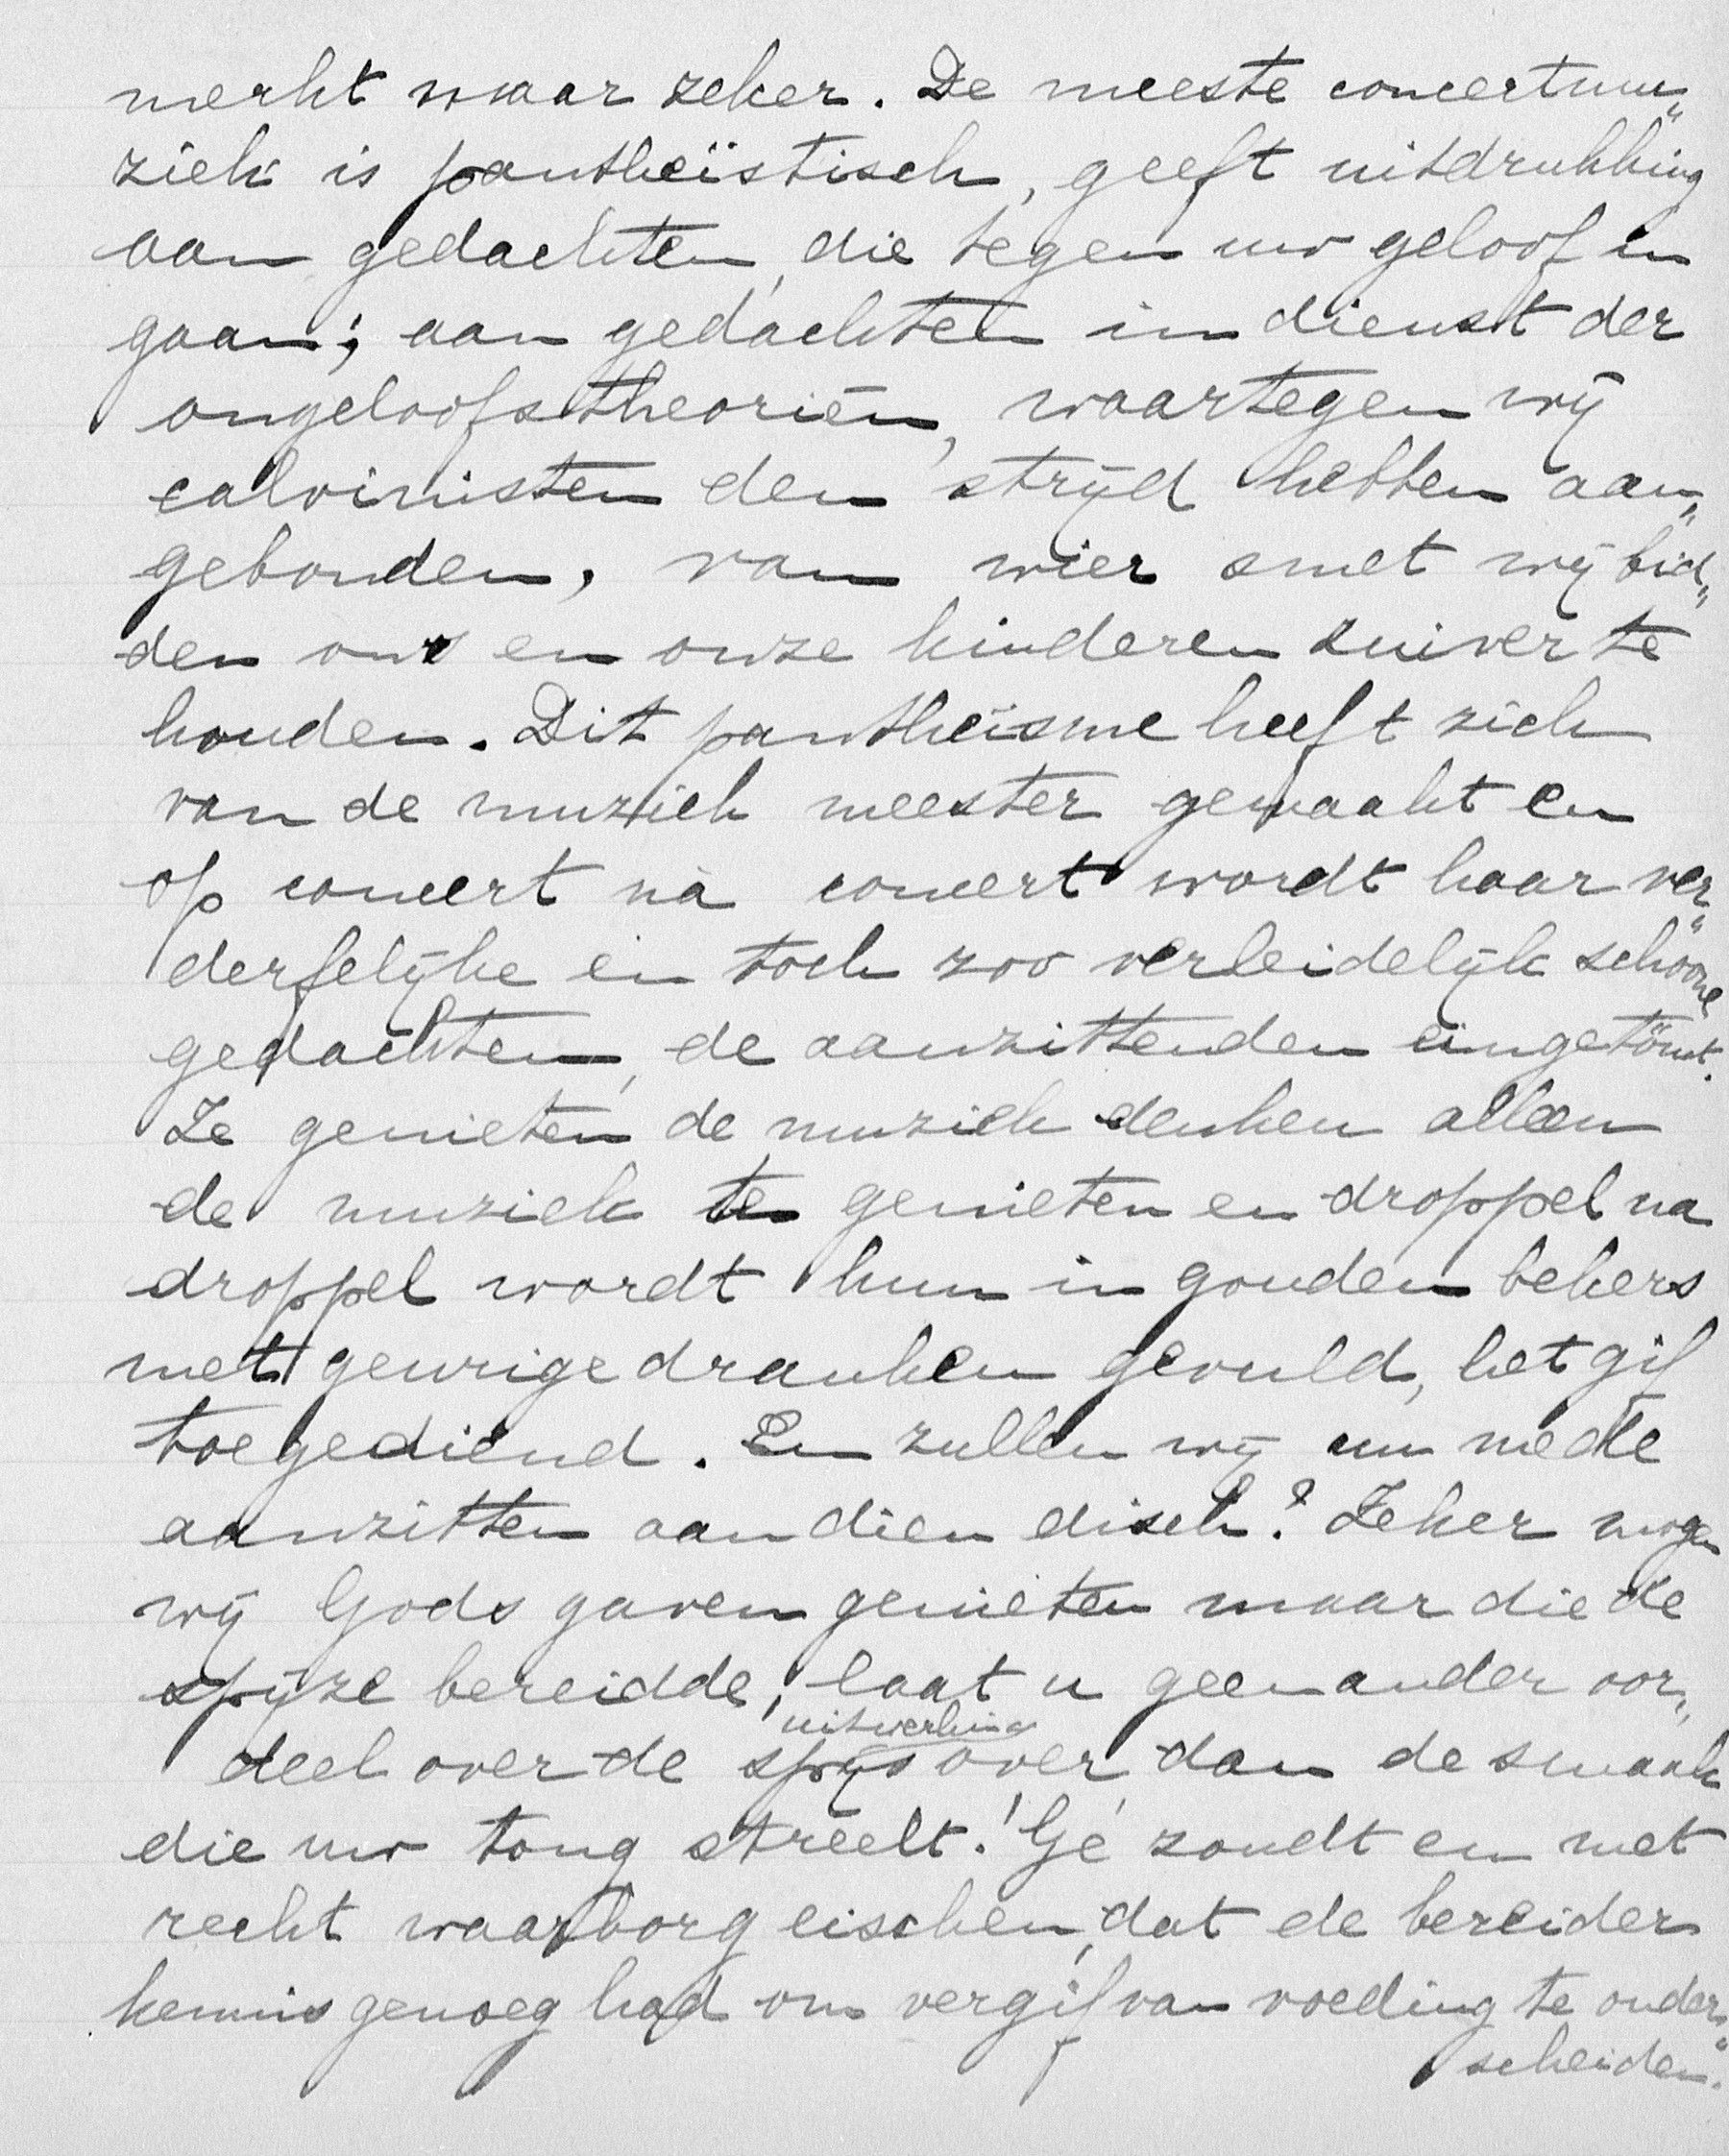 merkt maar zeker. De meeste concertmu„
ziek is pantheïstisch, geeft uitdrukking
aan gedachten, die tegen uw geloof in
gaan; aan gedachten in dienst der
ongeloofstheoriën, waartegen wij
calvinisten den strijd hebben aan„
gebonden, van wier smet wij bid„
den ons en onze kinderen zuiver te
houden. Dit pantheïsme heeft zich
van de muziek meester gemaakt en
op concert nà concert wordt haar ver„
derfelijke en toch zoo verleidelijk schoone
gedachten, de aanzittenden eingetönt.
Ze genieten de muziek denken alleen
de muziek te genieten en droppel na
droppel wordt hun in gouden bekers
met geurige dranken gevuld, het gif
toegediend. En zullen wij nu mede
aanzitten aan dien disch? Zeker mogen
wij Gods gaven genieten maar die de
spijze bereidde, laat u geen ander oor„
deel over de uitwerking spijs over, dan de smaak
die uw tong streelt! Gé zoudt en met
recht waarborg eischen, dat de bereider
kennis genoeg had om vergif van voeding te onder„
scheiden.